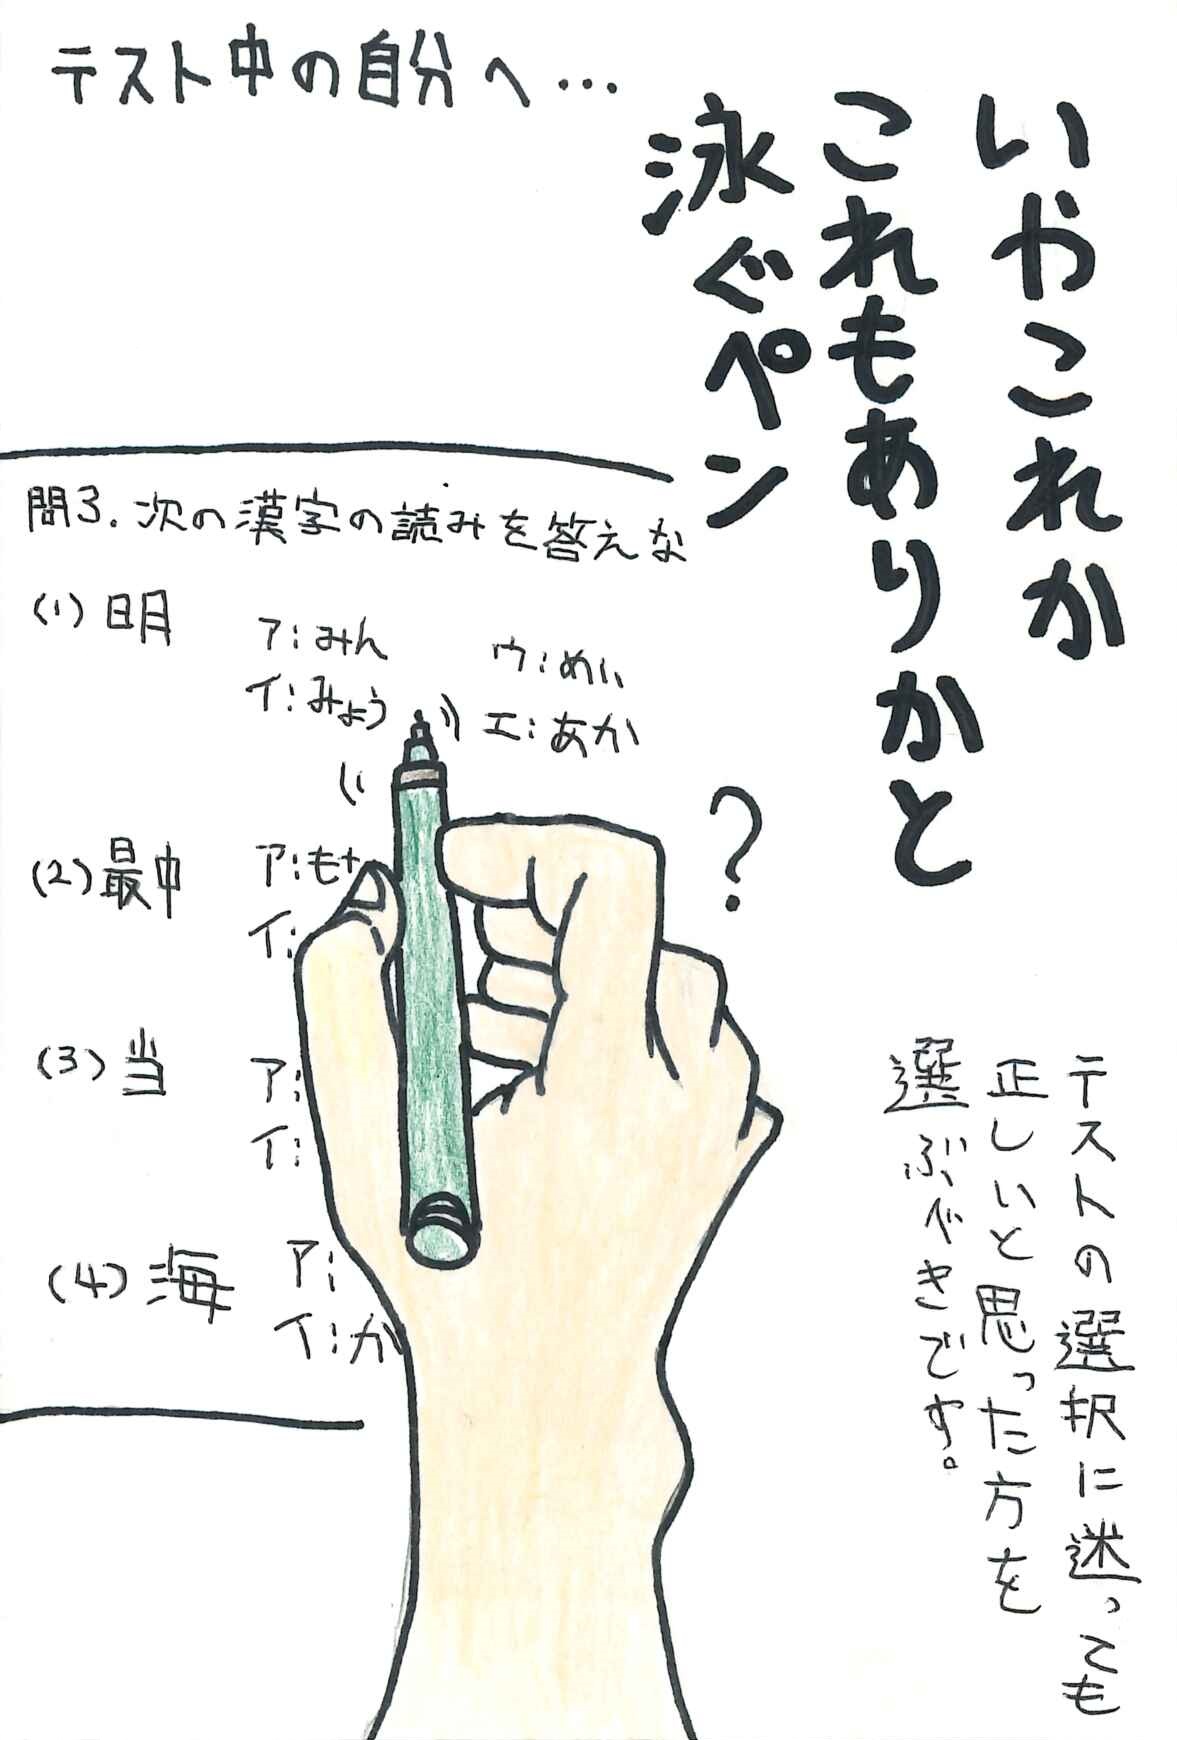 テスト中の自分へ…
いやこれか
これもありかと
泳ぐペン
問3.次の漢字の読みを答えな
(1)明
ア:みん
イ:みょう
ウ:めい
エ:あか
(2)最中
ア:も
イ:
(3)当
ア:
イ:
(4)海
ア:
イ:か
?
テストの選択に迷っても
正しいと思った方を
選ぶべきです。